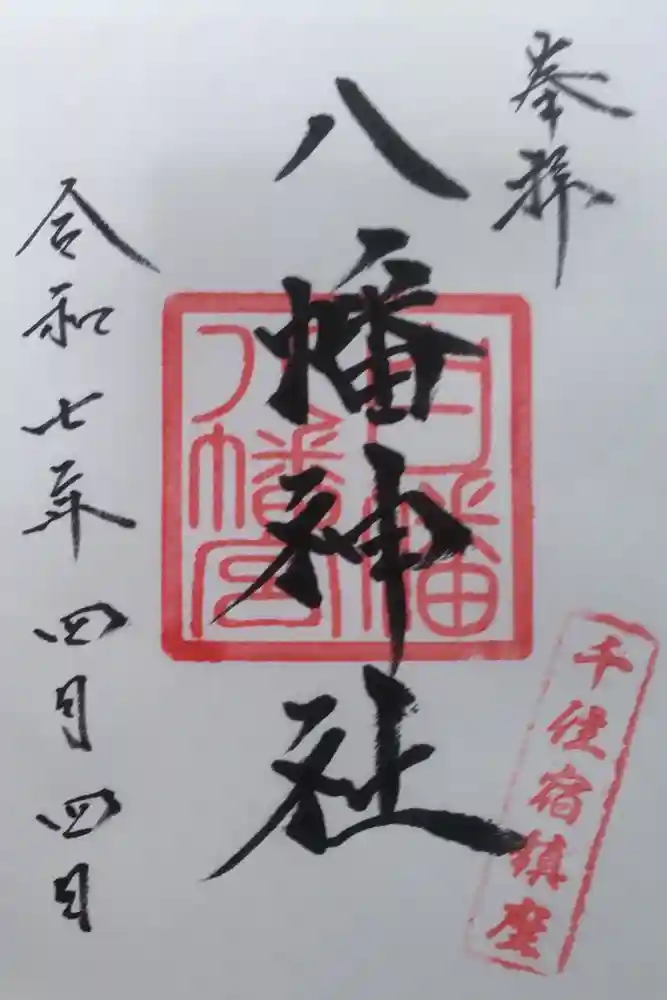 奉拝
八幡神社
白幡
八幡宮
千住宿鎮座
令和七年四月四日